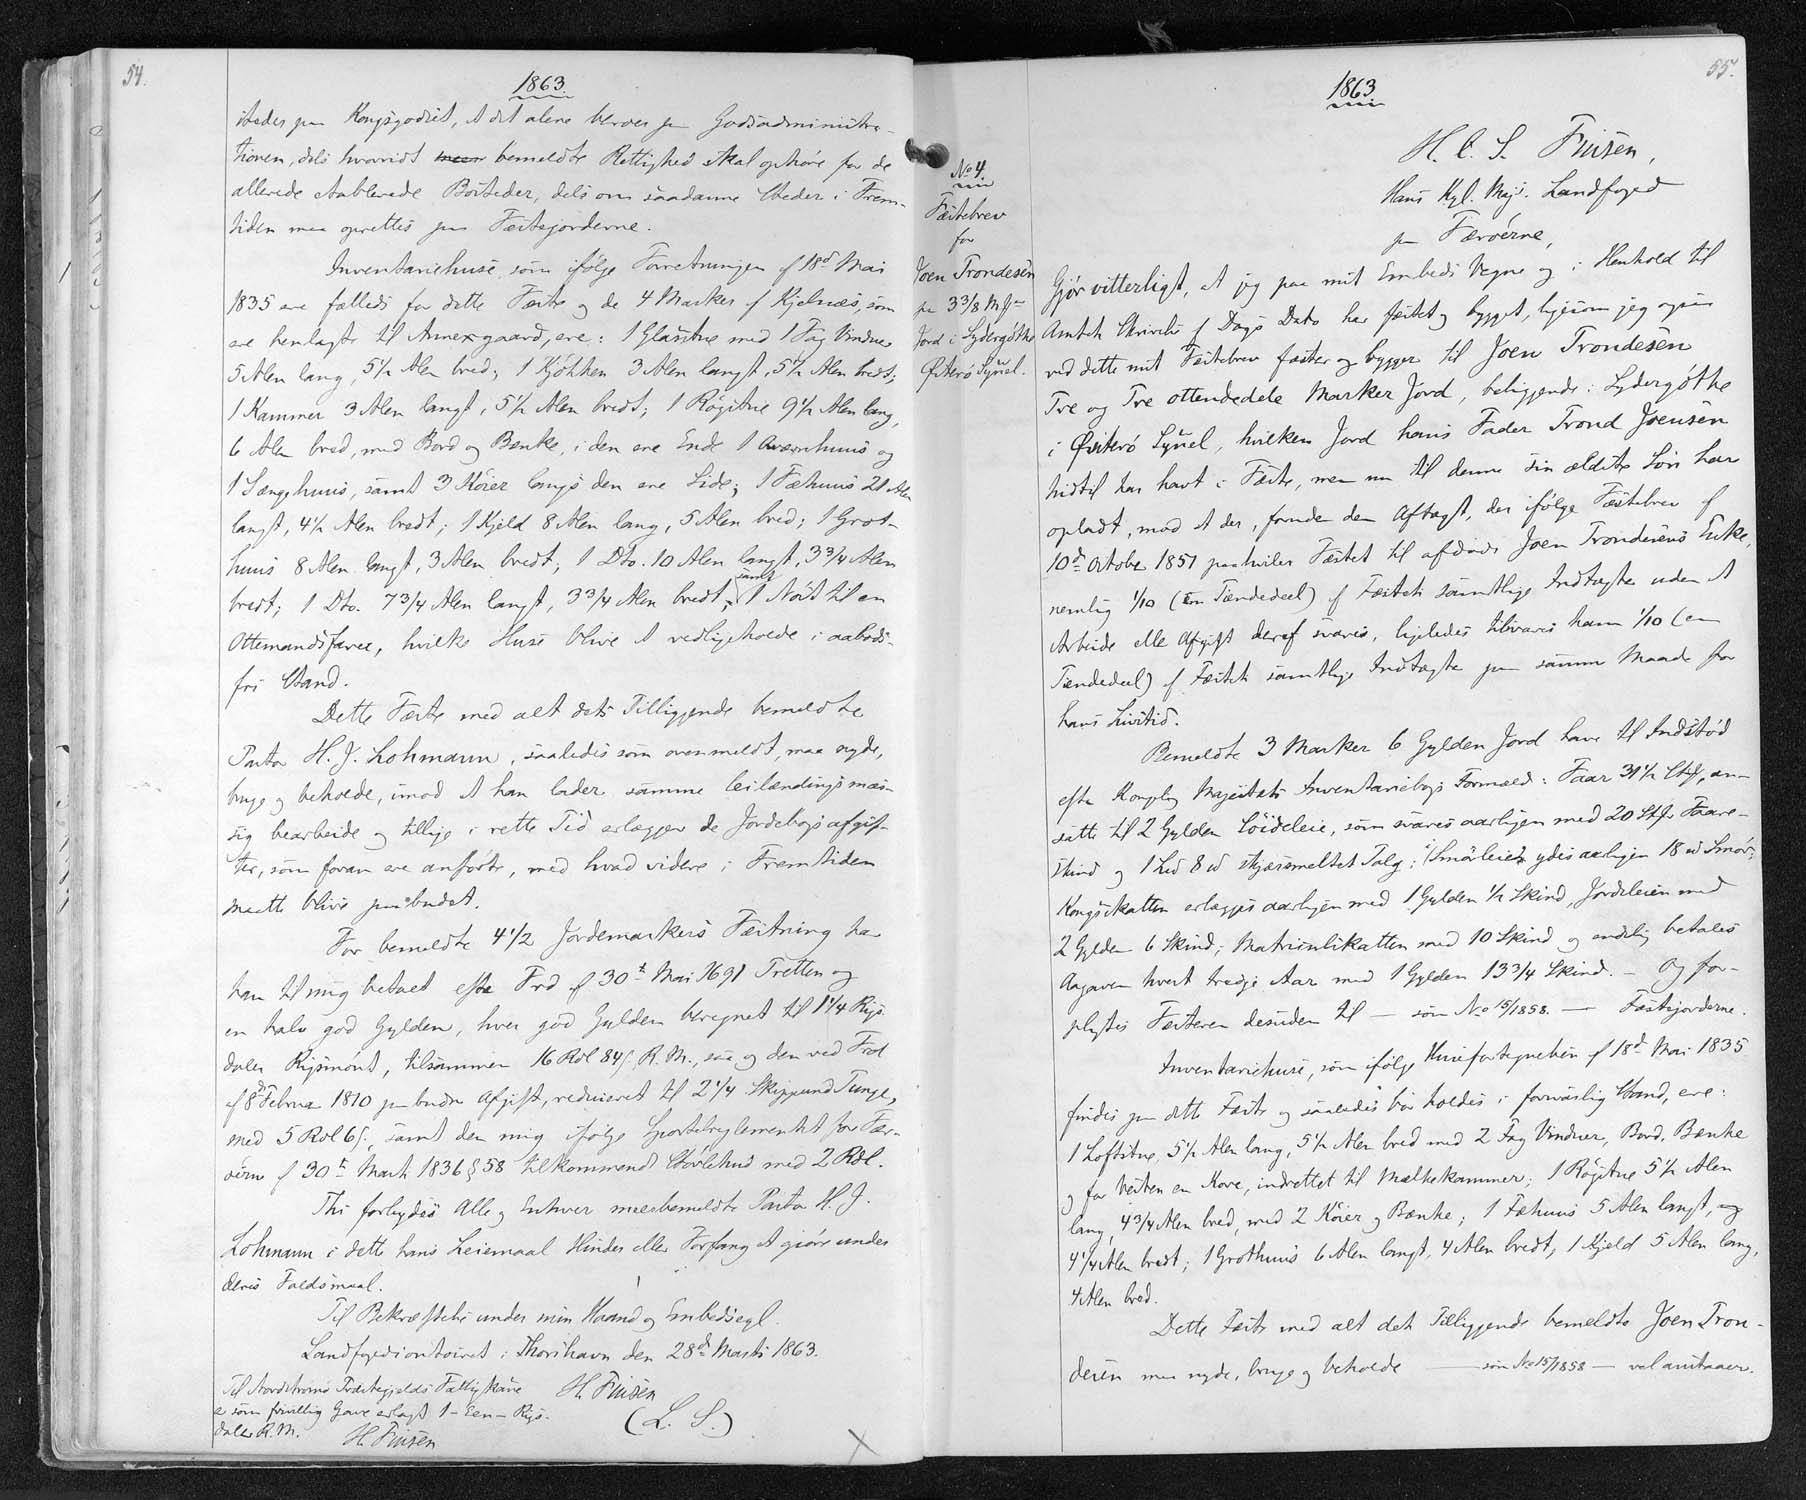 54.
1863.
steder paa Kongsgodset, at det alene beroer paa Godsadministra-
tionen, dels hvorvidt bemeldte Rettighed skal ophøre for de
allerede etablerede Bosteder, dels om saadanne Steder i Frem-
tiden maa oprettes paa Fæstejorderne.
Inventariehuse som ifølge Forretningen af 18de Mai
1835 ere fælleds for dette Fæste og de 4 Marker af Kjelnæs, som
ere henlagte til Annexgaard, ere: 1 Glasstue med 1 Fag Vinduer
5 Alen lang, 5½ Alen bred; 1 Kjøkken 3 Alen langt, 5½ Alen bredt;
1 Kammer 3 Alen langt, 5½ Alen bredt; 1 Røgstue 9½ Alen lang,
6 Alen bred, med Bord og Bænke, i den ene Ende 1 Qværnhuus og
1 Sængehuus, samt 3 Køier langs den ene Side; 1 Fæhuus 21 Alen
langt, 4½ Alen bredt; 1 Kjeld 8 Alen lang, 5 Alen bred; 1 Grot-
huus 8 Alen langt, 3 Alen bredt; 1 Dto. 10 Alen langt, 3 3/4 Alen
bredt; 1 Dto. 7 3/4 Alen langt, 3 3/4 Alen bredt, samt 1 Nøst til en
Ottemandsfarer, hvilke Huse blive at vedligeholde i aabods-
fri Stand.
Dette Fæste med alt dets Tilliggende bemeldte
Pastor H. J. Lohmann, saaledes som ovenmeldt, maa nyde,
bruge og beholde, imod at han lader samme leilændingsmæs-
sig bearbeide og tillige i rette Tid erlægger de Jordebogsafgif-
ter, som foran ere anførte, med hvad videre i Fremtiden
maatte blive paabudet.
For bemeldte 4 1/2 Jordemarkers Fæstning har
han til mig betalt efter Frd af 30te Mai 1691 Tretten og
en halv god Gylden, hver god Gylden beregnet til 1 1/4 Rigs-
daler Rigsmønt, tilsammen 16 Rdl 84 s. R. M., saa og den ved Frd
af 8de Februar 1810 paabudne Afgift, reduceret til 2 1/4 Skippund Tunge,
med 5 Rdl 6 s., samt den mig ifølge Sportelreglementet for Fær-
øerne af 30te Marts 1836 § 58 tilkommende Støvlehud med 2 Rdl.
Thi forbydes Alle og Enhver meerbemeldte Pastor H. J.
Lohmann i dette hans Leiemaal Hinder eller Forfang at gjøre under
deres Faldsmaal.
Til Bekræftelse under min Haand og Embedssegl.
Landfogedcontoiret i Thorshavn den 28de Marts 1863.
H. Finsen
(L. S.)
Til Nordstrømø Præstegjelds Fattigkasse
er som frivillig Gave erlagt 1 - Een - Rigs-
daler R. M.
H. Finsen
55.
1863
No 4.
Fæstebrev
for
Joen Trondesen
paa 3 3/8 Mk
Jord i Sydergøthe
Østerø Syssel.
H. C. S. Finsen,
Hans Kgl. Majs. Landfoged
paa Færøerne,
Gjør vitterligt, at jeg paa mit Embeds Vegne og i Henhold til
Amtets Skrivelse af Dags Dato har fæstet og bygget, ligesom jeg ogsaa
ved dette mit Fæstebrev fæster og bygger til Joen Trondesen
Tre og Tre ottendedele Marker Jord, beliggende i Sydergøthe
i Østerø Syssel, hvilken Jord hans Fader Trond Joensen
hidtil har havt i Fæste, men nu til denne sin ældste Søn har
opladt, mod at der, foruden den Aftægt, der ifølge Fæstebrev af
10de October 1851 paahviler Fæstet til afdøde Joen Trondesens Enke,
nemlig 1/10 (En Tiendedeel) af Fæstets samtlige Indtægter uden at
Arbeide eller Afgift deraf svares, ligeledes tilsvares ham 1/10 (en
Tiendedeel) af Fæstets samtlige Indtægter paa samme Maade for
hans Livstid.
Bemeldte 3 Marker 6 Gylden Jord have til Indstød
efter Kongelig Majestæts Inventariebogs Formæld: Faar 31½ Stkr, an-
satte til 2 Gylden Løideleie, som svares aarligen med 20 Stkr Faare-
skind og 1 Lod 8 skjærsmeltet Talg; i Smørleie ydes aarligen 18 Smør;
Kongsskatten erlægges aarligen med 1 Gylden ½ Skind, Jordeleien med
2 Gylden 6 Skind; Matrikulskatten med 10 Skind og endelig betales
Aagaven hvert tredje Aar med 1 Gylden 13 3/4 Skind. - Og for-
pligtes Fæsteren desuden til — som No 15/1858. — Fæstejorderne.
Inventariehuse, som ifølge Huusfortegnelsen af 18de Mai 1835
findes paa dette Fæste og saaledes bør holdes i forsvarlig Stand, ere:
1 Loftstue, 5½ Alen lang, 5½ Alen bred med 2 Fag Vinduer, Bord, Bænke
og for Vesten en Kove, indrettet til Mælkekammer; 1 Røgstue 5½ Alen
lang, 4 3/4 Alen bred, med 2 Køier og Bænke; 1 Fæhuus 5 Alen langt, og
4 1/4 Alen bredt; 1 Grothuus 6 Alen langt, 4 Alen bredt, 1 Kjeld 5 Alen lang,
4 Alen bred.
Dette Fæste med alt dets Tilliggende bemeldte Joen Tron-
desen maa nyde, bruge og beholde — som No 15/1858 — vel anstaaer.